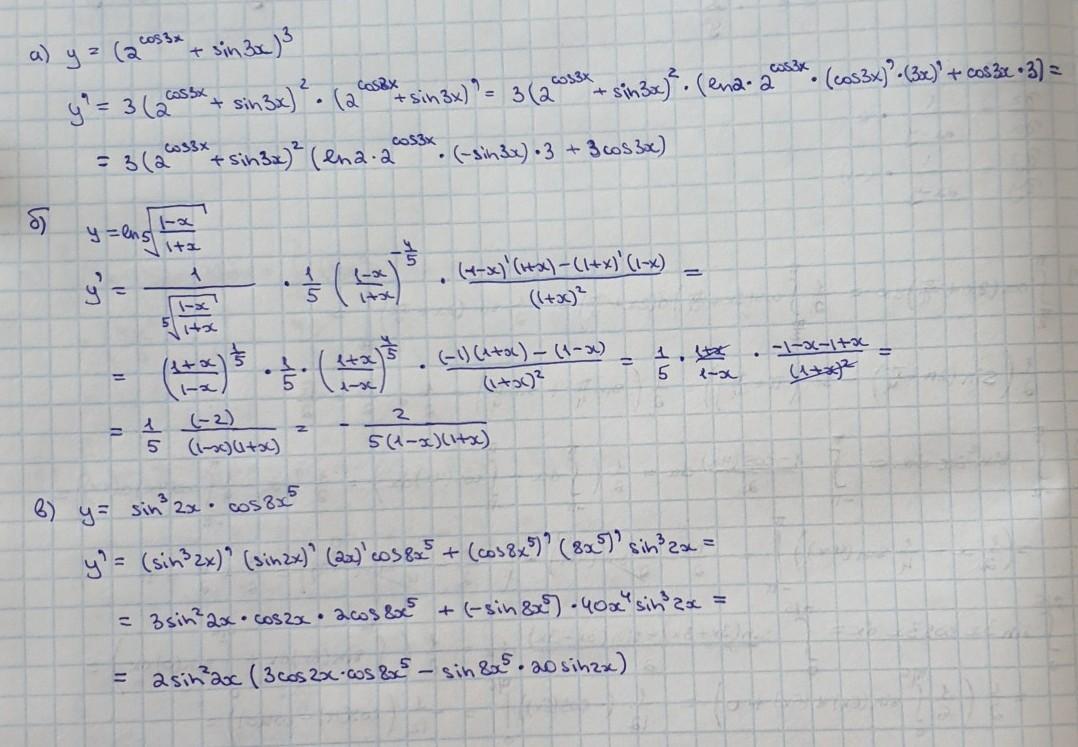 а) y = (2^{cos3x} + sin3x)^3
y' = 3(2^{cos3x} + sin3x)^2 · (2^{cos3x} + sin3x)' = 3(2^{cos3x} + sin3x)^2 · (ln2 · 2^{cos3x} · (cos3x)' · (3x)' + cos3x · 3) =
= 3(2^{cos3x} + sin3x)^2 (ln2 · 2^{cos3x} · (-sin3x) · 3 + 3cos3x)
б) y = ln \sqrt[5]{\frac{1-x}{1+x}}
y' = \frac{1}{\sqrt[5]{\frac{1-x}{1+x}}} · \frac{1}{5} (\frac{1-x}{1+x})^{-\frac{4}{5}} · \frac{(1-x)'(1+x) - (1+x)'(1-x)}{(1+x)^2} =
= (\frac{1+x}{1-x})^{\frac{1}{5}} · \frac{1}{5} · (\frac{1+x}{1-x})^{\frac{4}{5}} · \frac{(-1)(1+x) - (1-x)}{(1+x)^2} = \frac{1}{5} · \frac{1+x}{1-x} · \frac{-1-x-1+x}{(1+x)^2} =
= \frac{1}{5} \frac{(-2)}{(1-x)(1+x)} = - \frac{2}{5(1-x)(1+x)}
в) y = sin^3 2x · cos8x^5
y' = (sin^3 2x)' (sin2x)' (2x)' cos8x^5 + (cos8x^5)' (8x^5)' sin^3 2x =
= 3sin^2 2x · cos2x · 2cos8x^5 + (-sin8x^5) · 40x^4 sin^3 2x =
= 2sin^2 2x (3cos2x · cos8x^5 - sin8x^5 · 20sin2x)